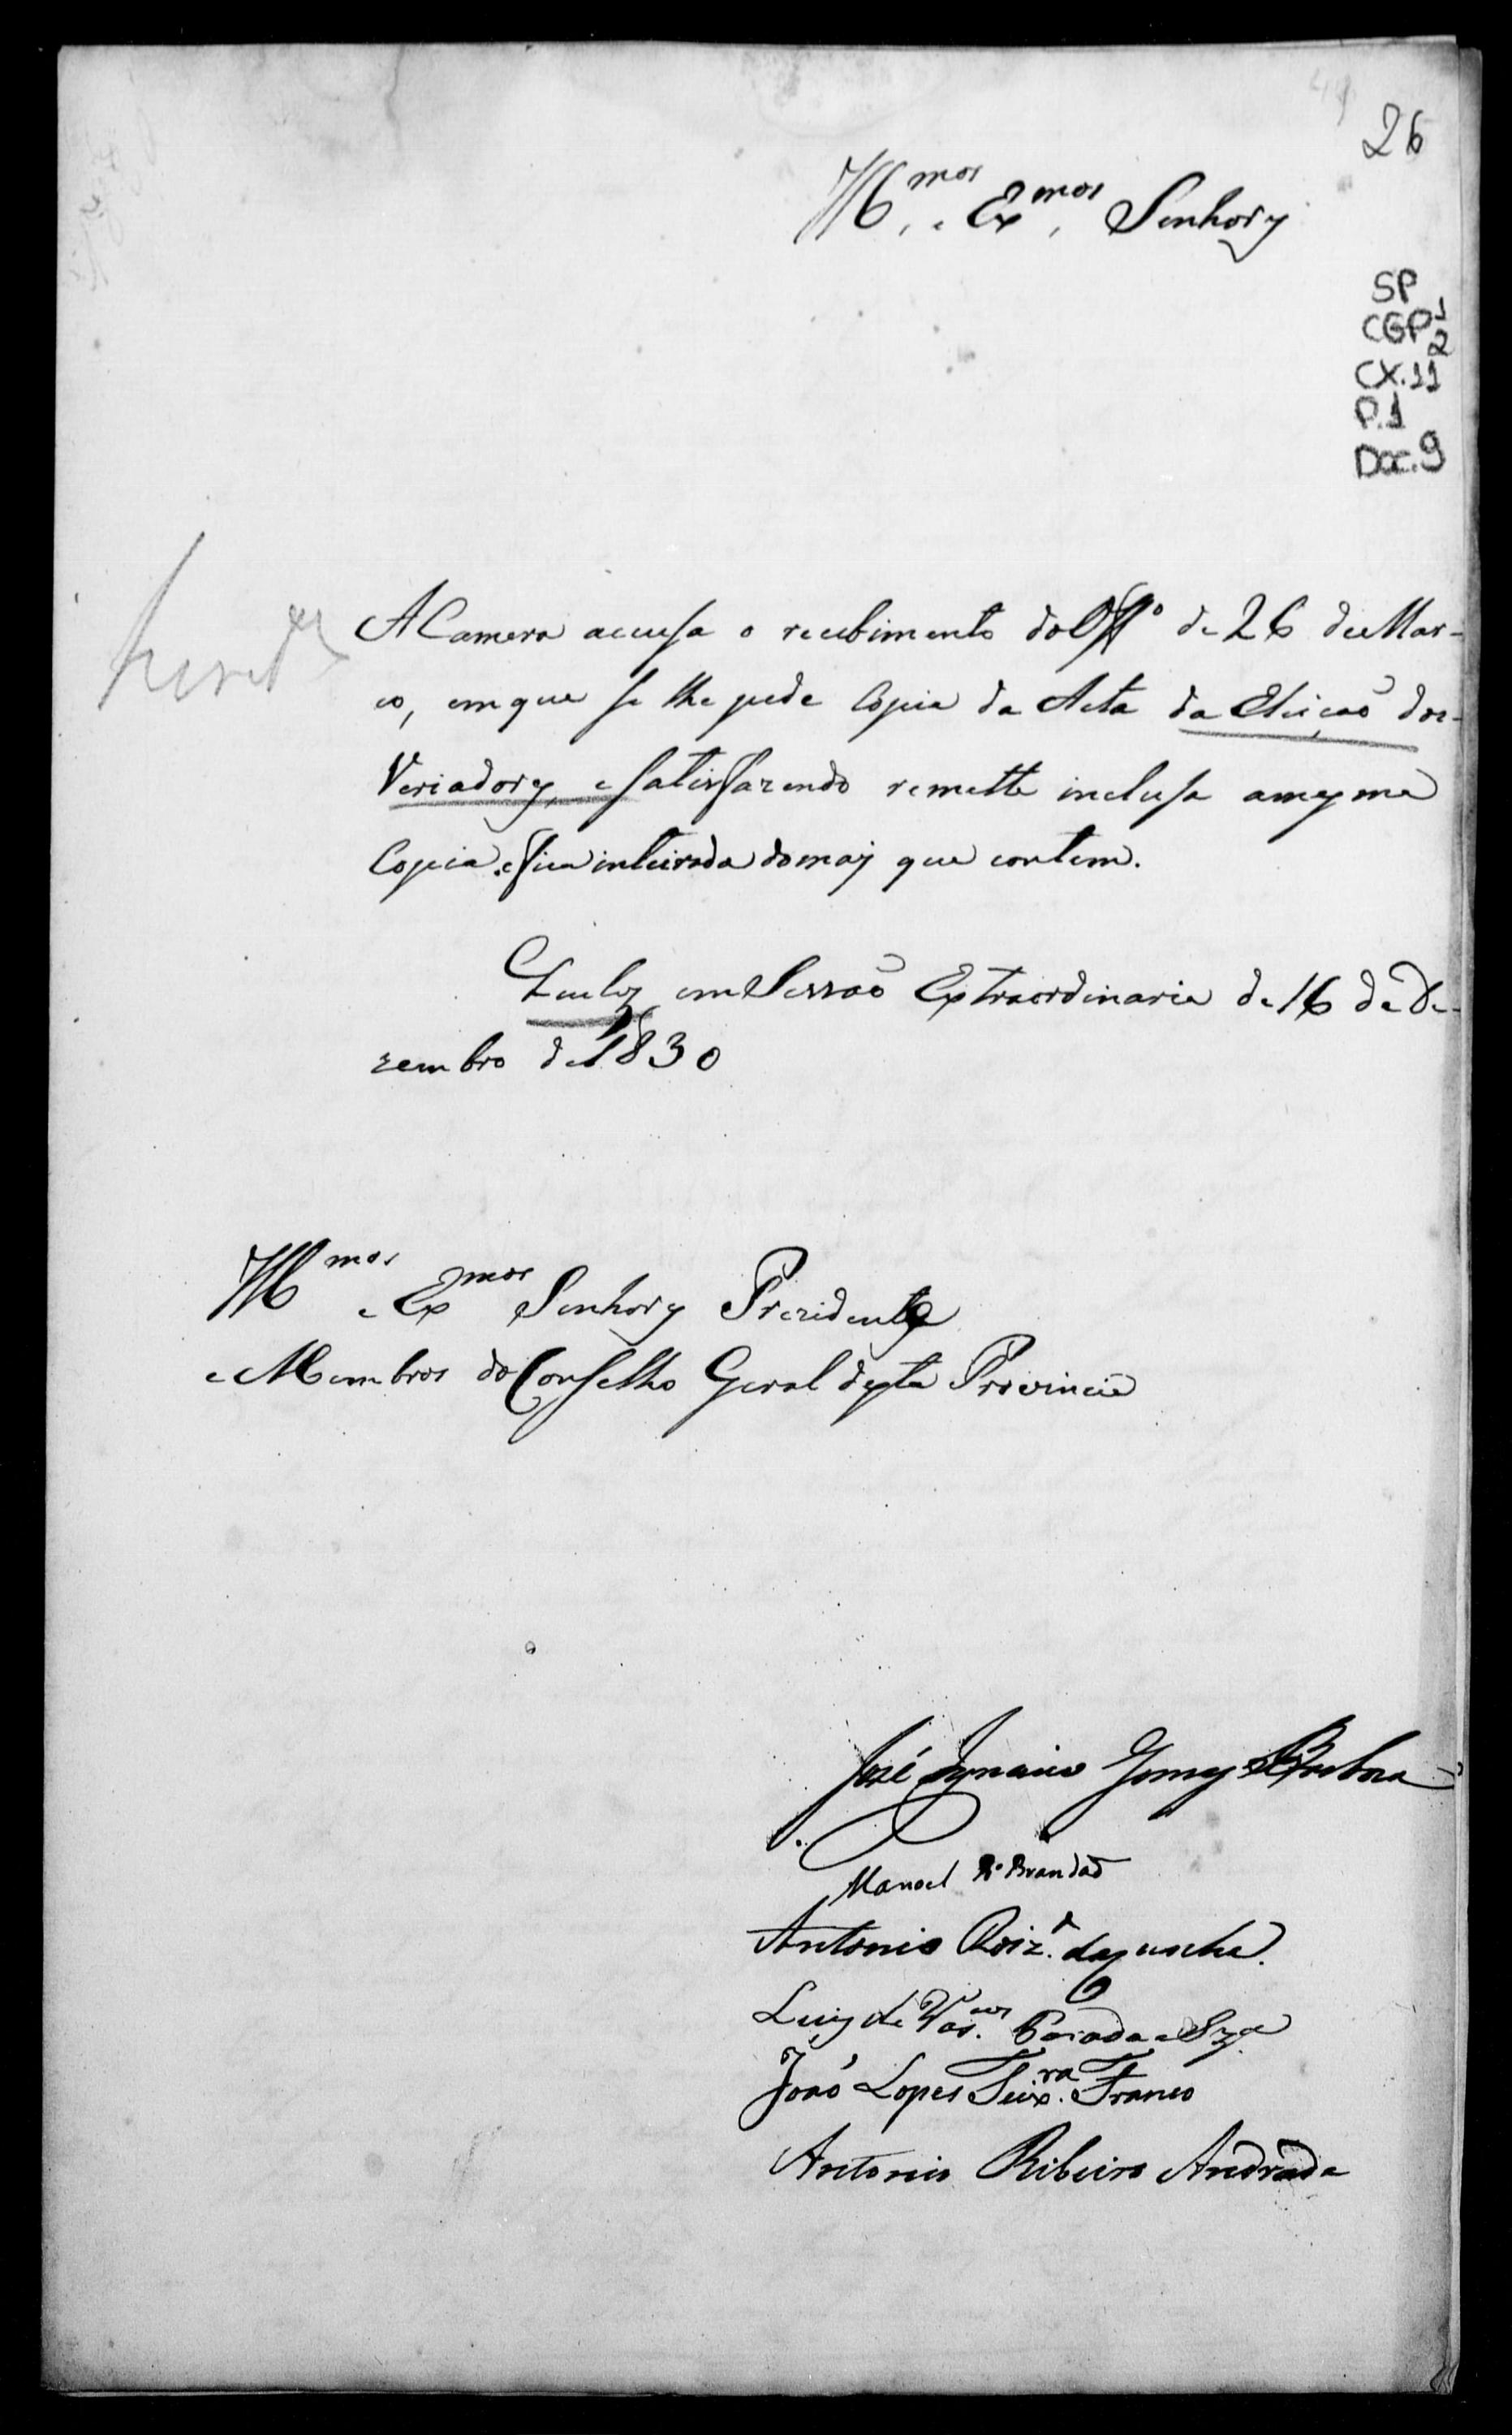 26
Ill.mos e Ex.mos Senhores
SP
CGP1
2
CX.11
P.1
Doc.9
A Camera accusa o recebimento do Offo de 26 de Mar-
co, em que se lhe pede Copia da Acta da Eleiçaõ dos
Veriadores, e satisfazendo remette inclusa a mesma
Copia, e fica inteirada do mais que contem.
Queluz em Sessaõ Extraordinaria de 16 de De-
zembro de 1830
Illmos e Exmos Senhores Prezidente
e Membros do Conselho Geral desta Provincia
José Ignacio Gomes Barboza
Manoel Ro Brandaõ
Antonio Roiz.
Luiz de Vas.cos Parada e Sza
Joaõ Lopes Teix.ra Franco
Antonio Ribeiro Andrada